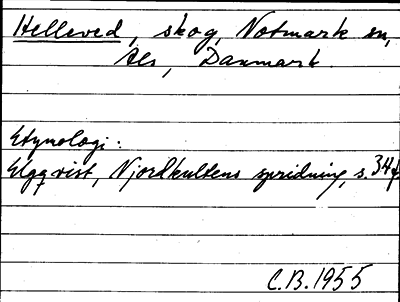 Helleved, skog, Notmark sn,
Als, Danmark.
Etymologi:
Elgqvist, Njordkultens spridning, s. 34f.
C.B. 1955